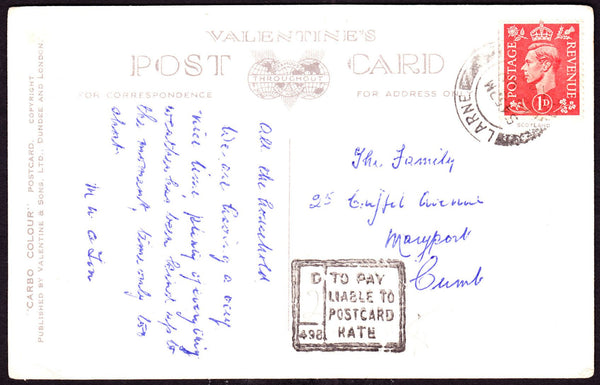 VALENTINE'S
POST CARD
THROUGHOUT
FOR CORRESPONDENCE
FOR ADDRESS ON
"CARBO COLOUR" POSTCARD. COPYRIGHT
PUBLISHED BY VALENTINE & SONS, LTD., DUNDEE AND LONDON.
POSTAGE
REVENUE
1D
LARNE
All the household
We are having a very
nice time, plenty of everything
weather has been kind up to
the moment, time only too
short.
M & Tom
The Family
25 Criffel Avenue
Maryport
Cumb
D TO PAY
2 LIABLE TO
POSTCARD
498 RATE